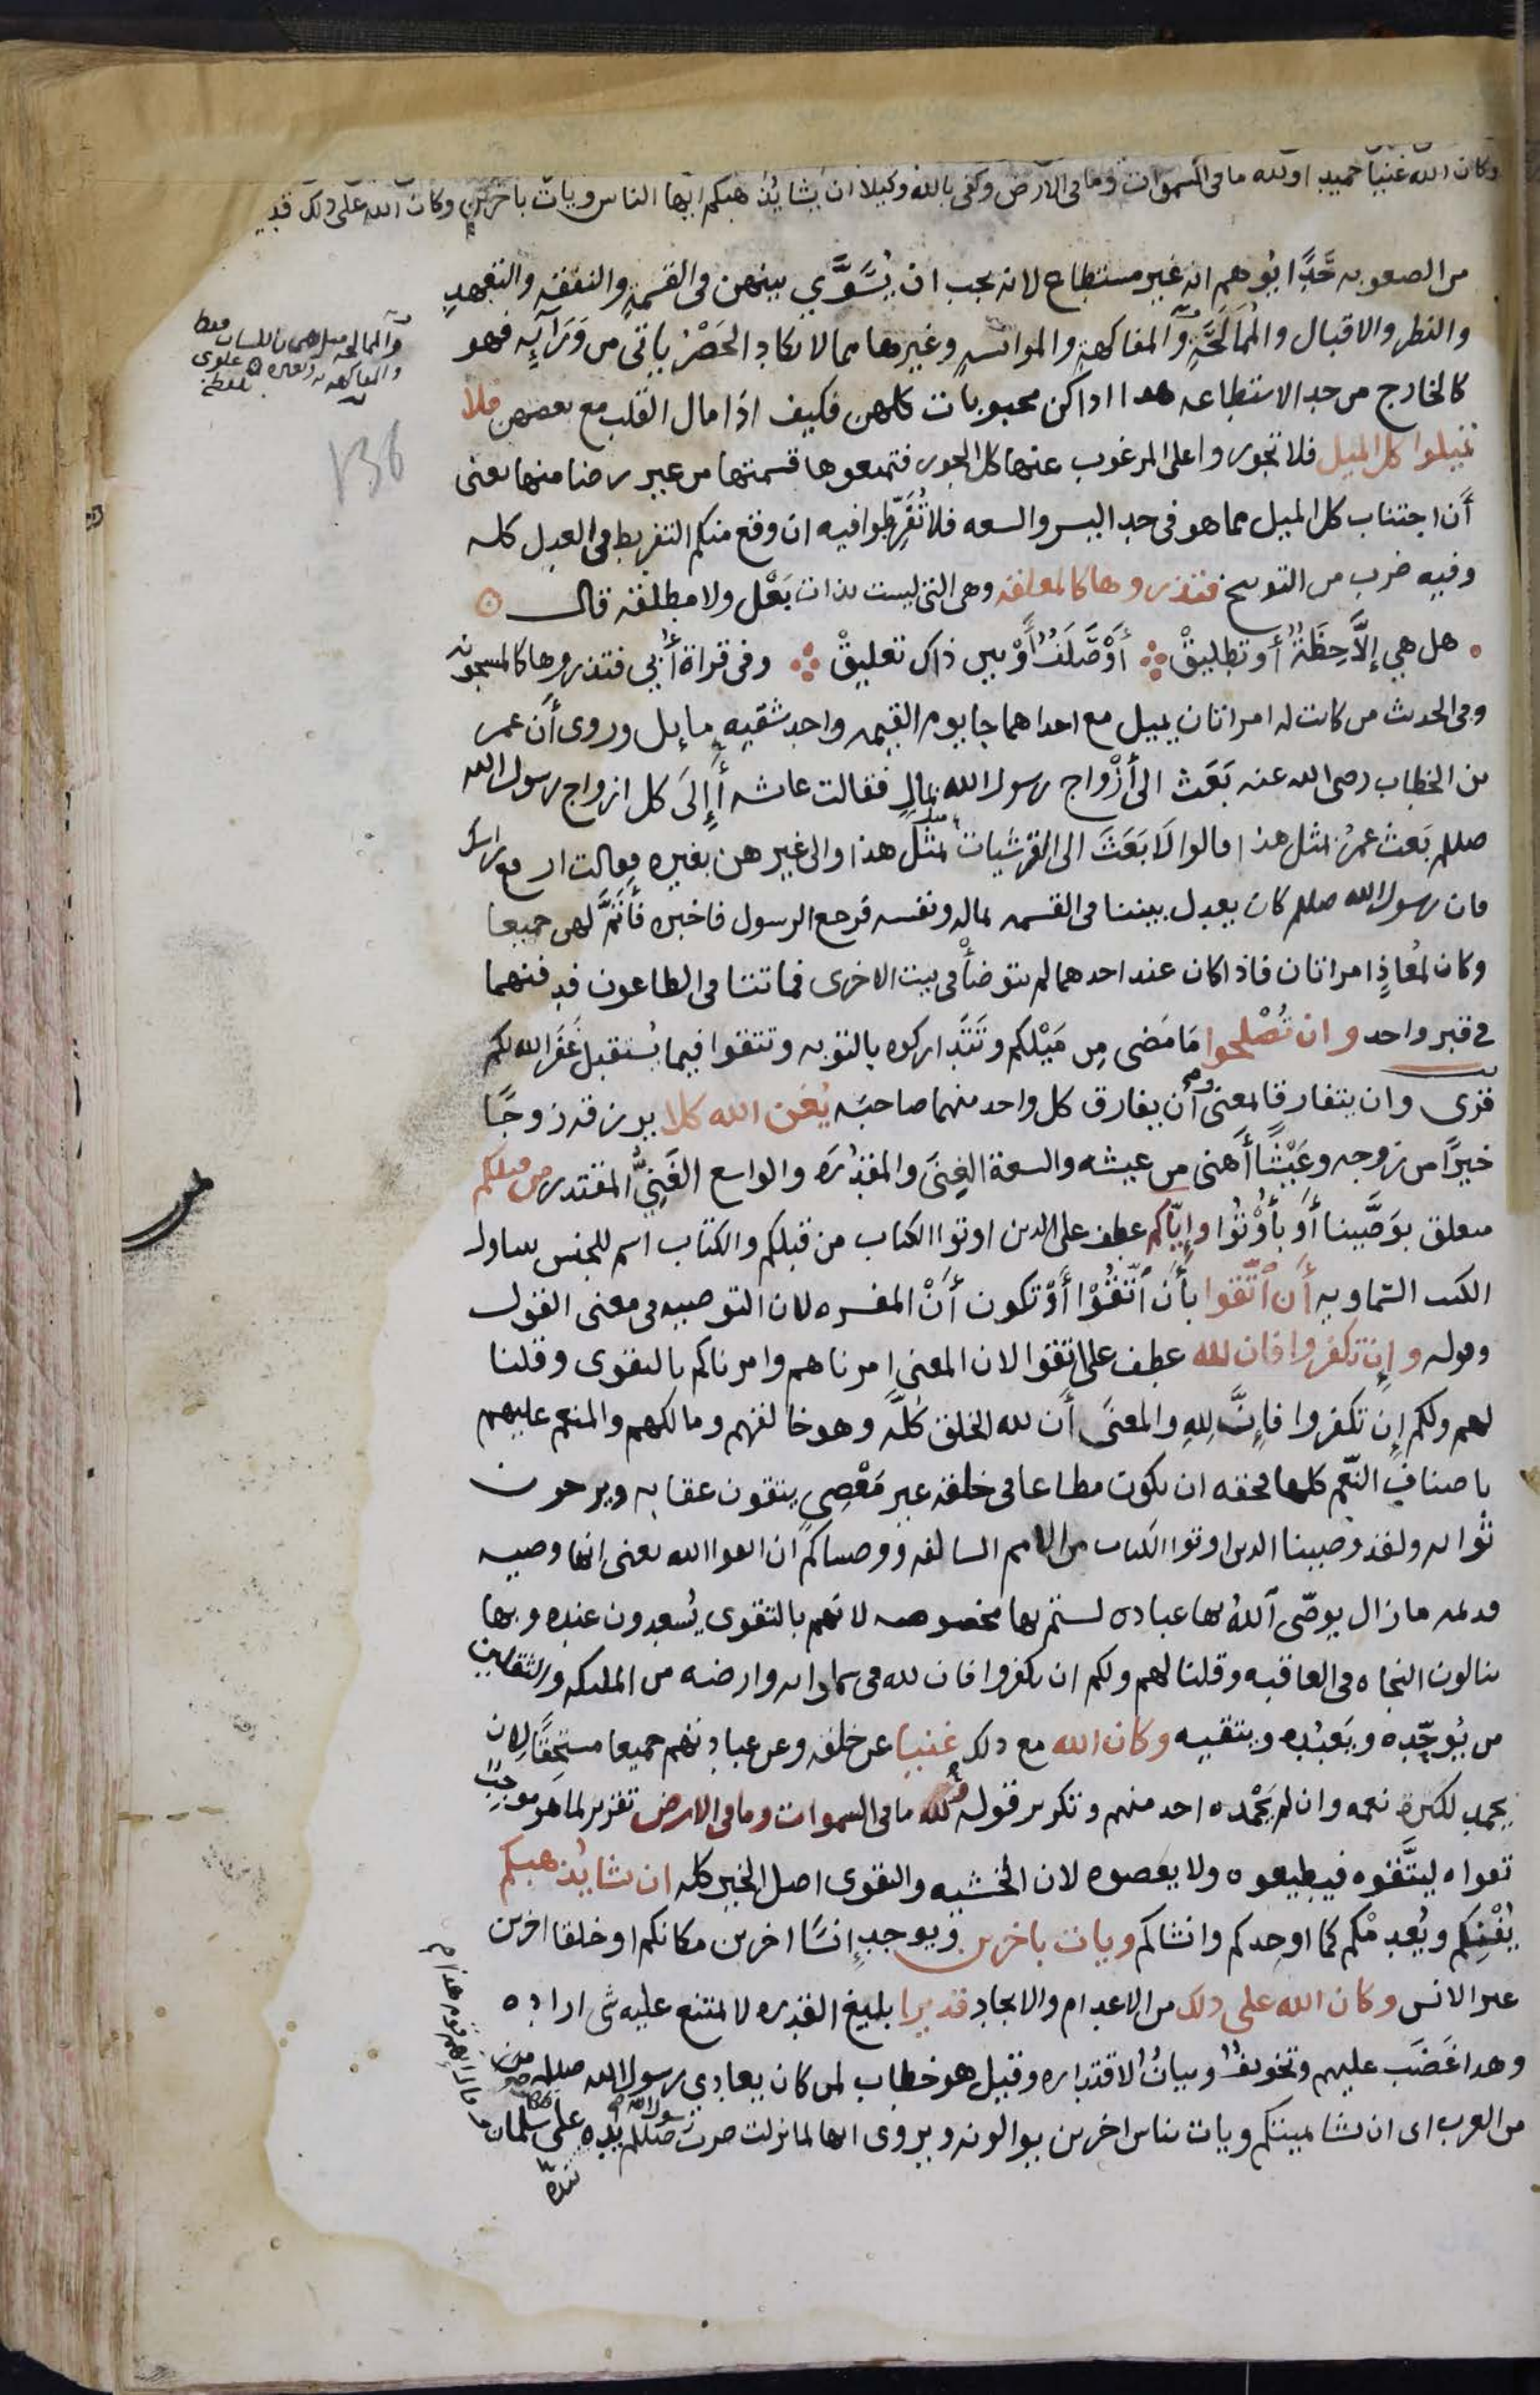 وكان الله غنيا حميدا ولله ما فى السموات وما فى الارض وكفى بالله وكيلا ان يشا يذهبكم ايها الناس ويات باخرين وكان الله على ذلك قدير
من الصعوبه حَدًّا يُوهم انه غير مستطاع لانه يجب ان يُسَوَّي بينهن فى القسمة والنفقه والتعهد
والنظر والاقبال والمُمَالَحَةِ والمفاكهةِ والموانسةِ وغيرها مما لا يكاد الحَصْرُ ياتى من وَرَآيِه فهو
كالخارج من حد الاستطاعه هذا اذا كن محبوبات كلهن فكيف اذا مال القلب مع بعضهن فلا
تميلوا كل الميل فلا تجوروا على المرغوب عنها كل الجور فتمنعوها قسمتها من غير رضا منها يعنى
أن اجتناب كل الميل مما هو فى حد اليسر والسعه فلا تُفَرِّطوا فيه ان وقع منكم التفريط فى العدل كله
وفيه ضرب من التوبيخ فتذروها كالمعلقه وهى التى ليست بذات بَعْل ولا مطلقه قال
هل هي إلَّا حِظَةٌ أو تطليقْ أَوْ صَلَفٌ أَوْ بين ذاك تعليقْ وفى قراة أُبي فتذروها كالمسجونه
وفى الحديث من كانت له امراتان يميل مع احداهما جا يوم القيمه واحد شقيه مايل وروى أن عمر
بن الخطاب رضى الله عنه بَعَث الى أزْواج رسول الله بمالٍ فقالت عايشه أَإِلَى كل ازواج رسول الله
صلله بَعث عمرُ مثل هذا قالوا لَا بَعَثَ الى القرشيات بمثل هذا والى غيرهن بغيره فقالت ارفع راسك
فان رسول الله صلله كان يعدل بيننا فى القسمه بماله ونفسه فرجع الرسول فاخبره فأَتَمَّ لهن جميعا
وكان لمُعاذٍ امراتان فاذا كان عند احدهما لم يتوضأ فى بيت الاخرى فماتتا فى الطاعون فدفنهما
فى قبر واحد وان تُصْلحوا مَا مَضى مِن مَيْلكم وتَتَدَاركوه بالتوبه وتتقوا فيما يُستقبل غَفَر الله لكم
قرى وان يتفارقا لمعنى وأن يفارق كل واحد منهما صاحبَه يُغن الله كلا يرزقه زوجًا
خيرًا من زوجه وعَيْشًا أهنى من عيشه والسعة الغِنَى والمقدُرَة والواسع الغَنِيُّ المقتدر من قبلكم
متعلق بوَصَّينا أَو بأُوْتُوا وإيّاكم عطف على الذين اوتوا الكتاب من قبلكم والكتاب اسم للجنس يتناول
الكتب السَّماويه أَن ٱتَّقوا بأَن ٱتَّقُوْا أَوْ تكون أَنْ المفسره لان التوصيه فى معنى القول
وقوله وإن تكفروا فان لله عطف على اتقوا لان المعنى امرناهم وامرناكم بالتقوى وقلنا
لهم ولكم إن تكفروا فإنَّ لِلهِ والمعنَى أَن لله الخلق كُلَّه وهو خالقهم ومالكهم والمنعم عليهم
باصناف النّعم كلها فحقه ان يكون مطاعا فى خلقه غير مَعْصِي يتقون عقابه ويرجون
ثوابه ولقد وصينا الذين اوتوا الكتاب من الامم السالفه ووصيناكم ان اتقوا الله يعنى انها وصيه
قديمه ما زال يوصّى ٱللهُ بها عباده لستم بها مخصوصه لانهم بالتقوى يُسعدون عنده وبها
ينالون النجاه فى العاقبه وقلنا لهم ولكم ان تكفروا فان لله فى سماواته وارضه من الملئكه والثقلين
من يُوحِّده ويَعْبُده ويتقيه وكان الله مع ذلك غنيا عن خلقه وعن عبادتهم جميعا مستحقًّا لان
يحمد لكثرة نعمه وان لم يَحْمده احد منهم وتكرير قوله لله ما فى السموات وما فى الارض تقرير لما هو موجبُ
تقواه ليتَّقوه فيطيعوه ولا يعصوه لان الخشيه والتقوى اصل الخير كله ان يشا يُذهبكم
يُفْنِكم ويُعدمْكم كما اوجدكم وانشاكم ويات باخرين ويوجد إنسًا اخرين مكانكم او خلقا اخرين
غير الانس وكان الله على ذلك من الاعدام والايجاد قديرا بليغ القدره لا يمتنع عليه شى اراده
وهذا غَضَب عليهم وتخويفٌ وبيانٌ لاقتداره وقيل هو خطاب لمن كان يعادي رسول الله صلله
من العرب اى ان يشا يميتكم ويات بناس اخرين يوالونه ويروى انها لما نزلت ضرب رسول الله صلله بيده على سلمان
136